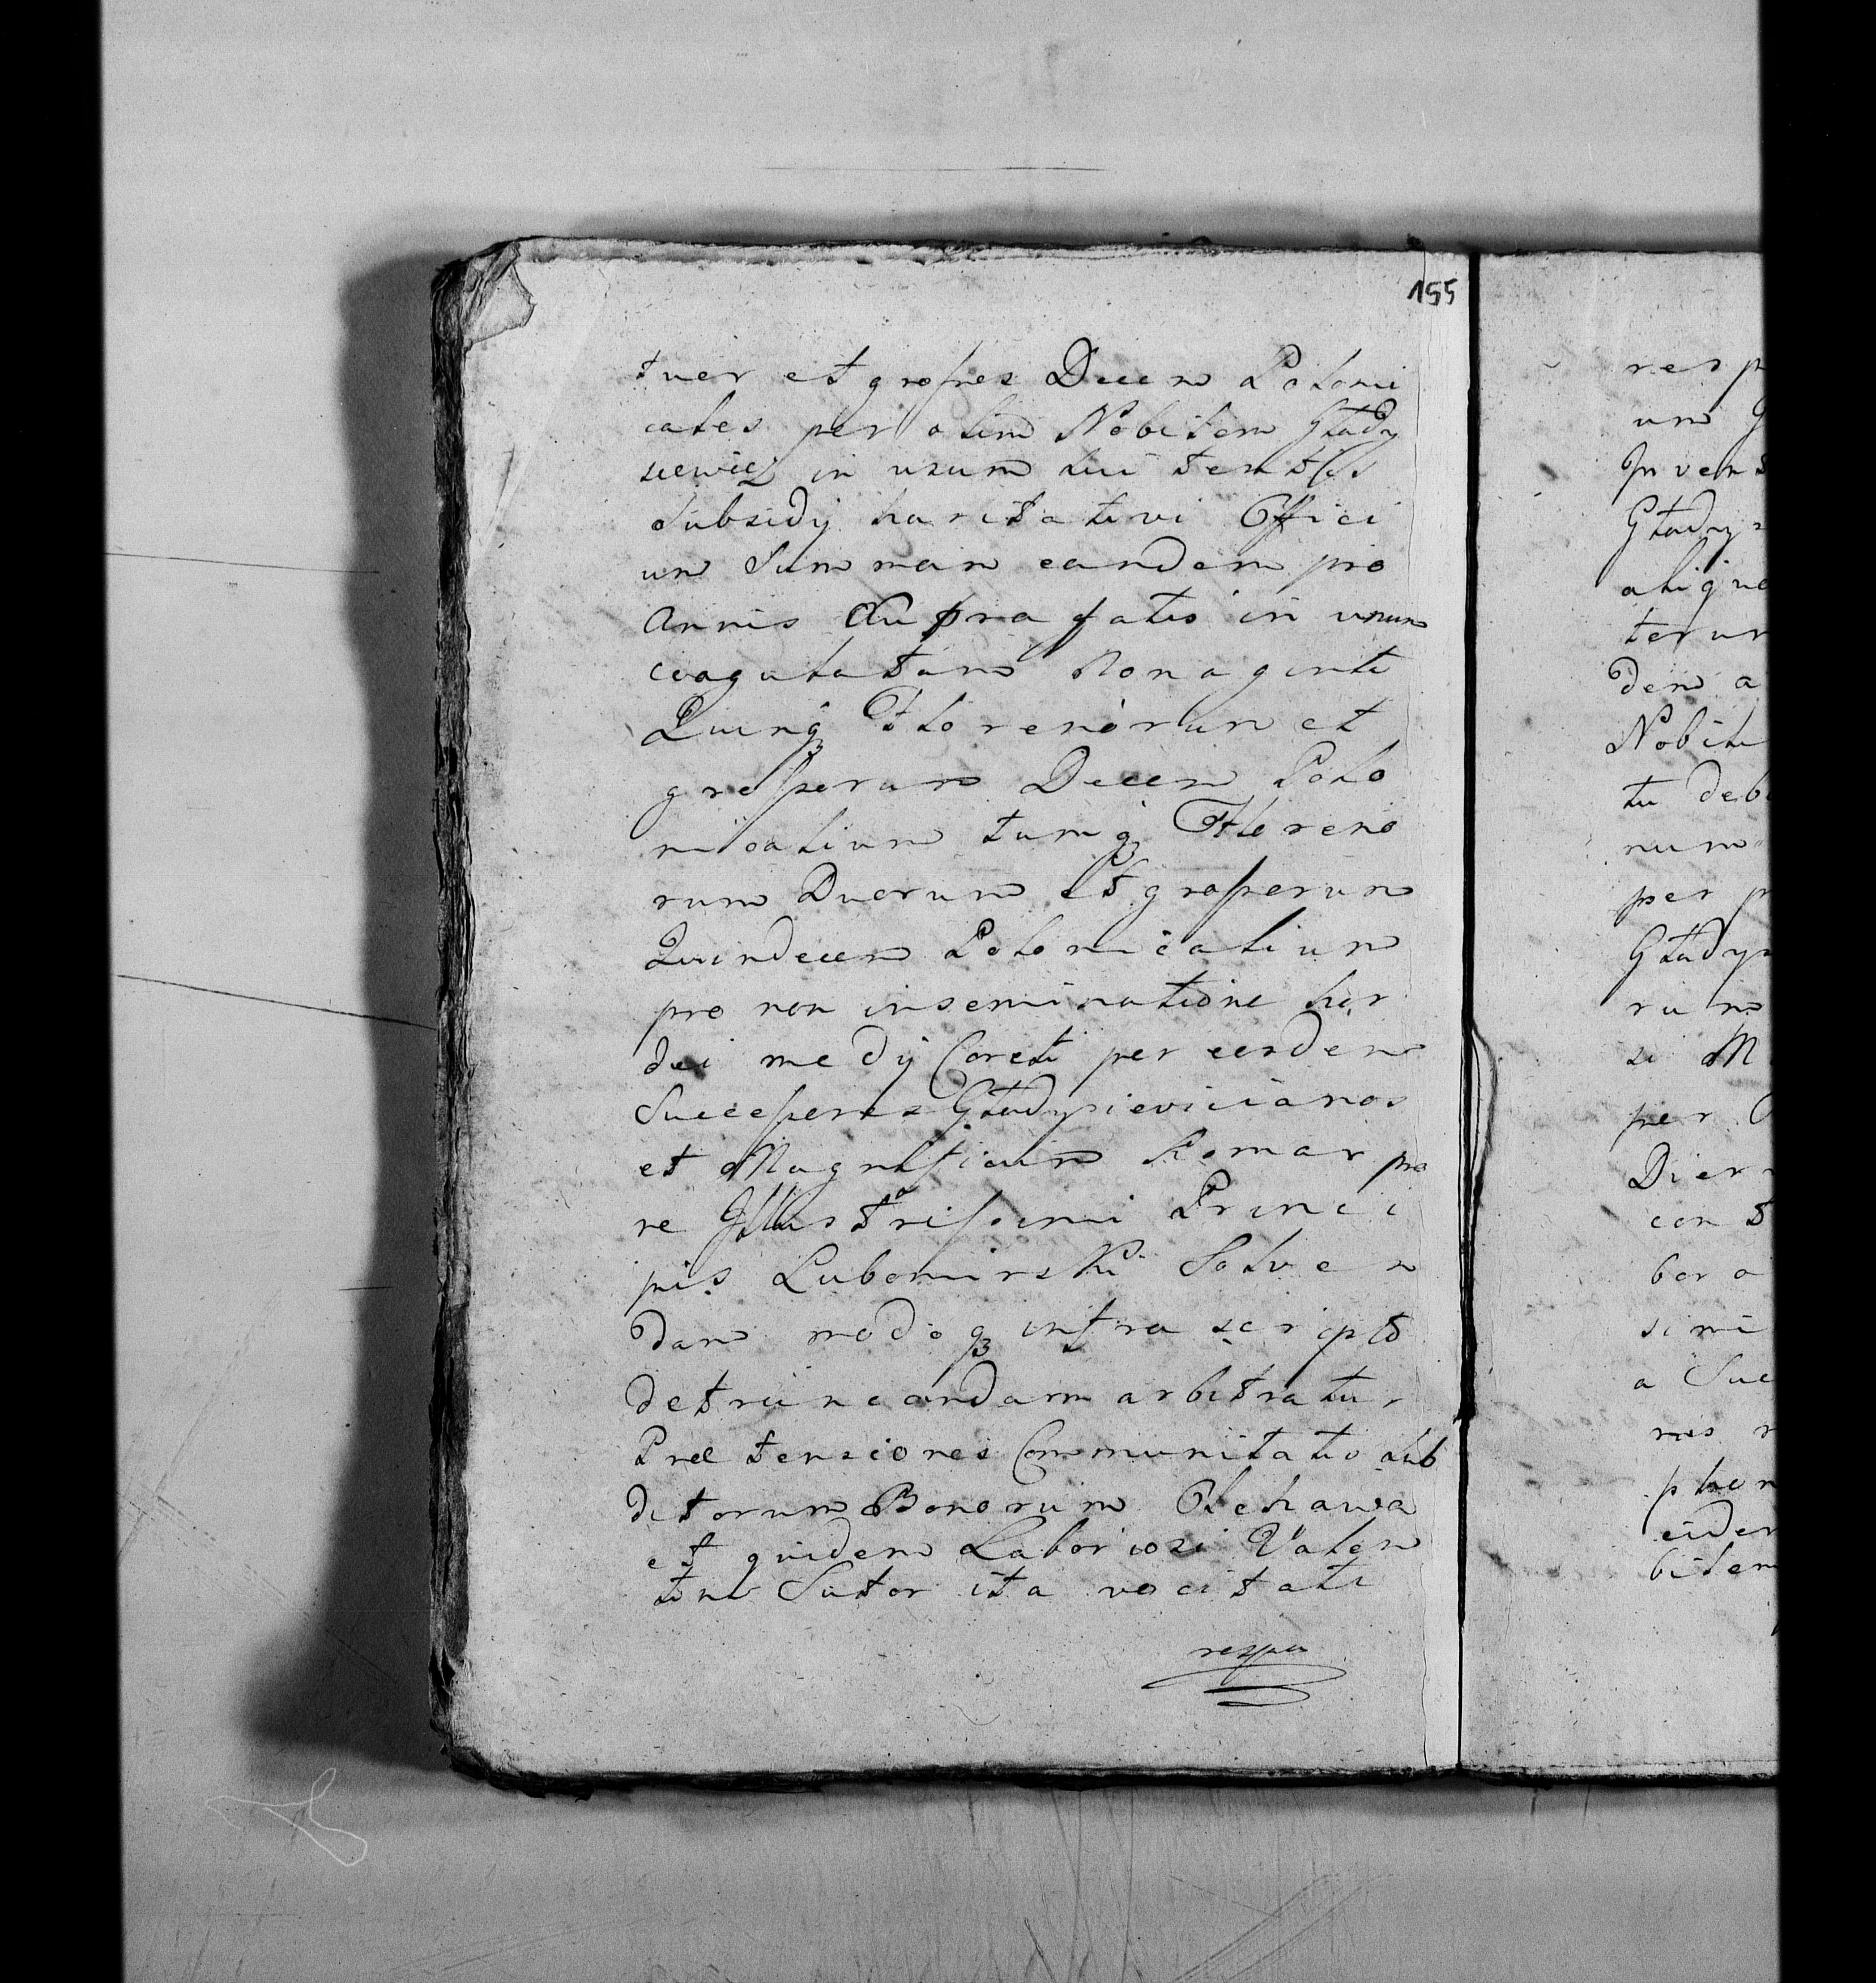 155
tuor et grosses Decem Poloni
cales per olim Nobilem Gładÿ
siewicz in usum
Subsidÿ haritativi Offici
um Summam eandem pro
Annis supra fatis in unum
coagulatam Nonaginta
Quinqȝ Florenorum et
grossorum Decem Polo
nicalium tumqȝ Floreno
rum Duorum et grossorum
Quindecem Polonicalium
pro non inseminatione hor
dei medÿ Coreti per eosdem
Successores Gładysievicianos
et Magnificum Komar pro
re Illustrissimi Princi
pis Lubomirski Solven
dam modoqȝ infra scripto
detruncandam arbitratur
Prætensiones Communitatis sub
ditorum Bonorum Olchawa
et quidem Laboriosi Valen
tini Sutor ita vocitati
respu
resp
um G
Invent
Gładys
alique
terur
dem a
Nobili
tu deb
num
per p
Gładys
rum
si M
per
Dier
con t
bor a
simi
a Suc
res r
plur
eider
bilem